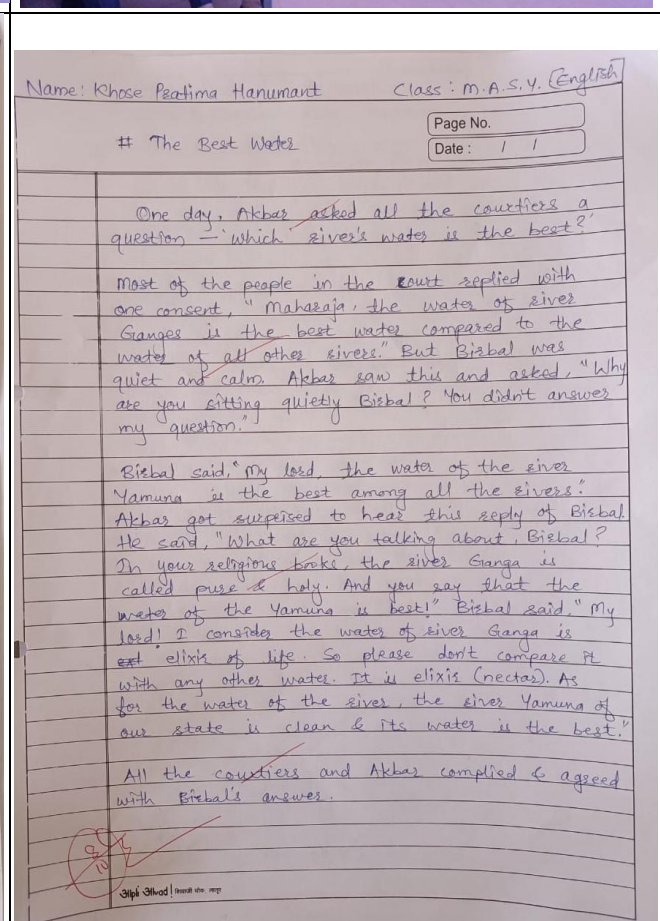 Name: Khose Pratima Hanumant Class: M.A.S.Y. (English)
Page No.
# The Best Water
Date : / /
One day, Akbar asked all the courtiers a
question – 'which river's water is the best?'
Most of the people in the court replied with
one consent, "Maharaja, the water of river
Ganges is the best water compared to the
water of all other rivers." But Birbal was
quiet and calm. Akbar saw this and asked, "Why
are you sitting quietly Birbal? You didn't answer
my question."
Birbal said, "My lord, the water of the river
Yamuna is the best among all the rivers."
Akbar got surprised to hear this reply of Birbal.
He said, "What are you talking about, Birbal?
In your religious books, the river Ganga is
called pure & holy. And you say that the
water of the Yamuna is best!" Birbal said, "My
lord! I consider the water of river Ganga is
elixir of life. So please don't compare it
with any other water. It is elixir (nectar). As
for the water of the river, the river Yamuna of
our state is clean & its water is the best."
All the courtiers and Akbar complied & agreed
with Birbal's answer.